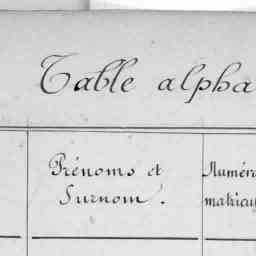 Table alpha
Prénoms et
Surnom.
Numéro
matricu